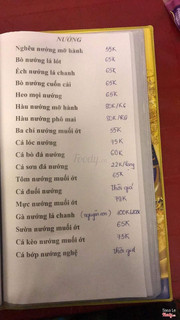 NƯỚNG
Nghêu nướng mỡ hành 55K
Bò nướng lá lốt 65K
Ếch nướng lá chanh 65K
Bò nướng cuốn cải 65K
Heo mọi nướng 65K
Hàu nướng mỡ hành
Hàu nướng phô mai
Ba chỉ nướng muối ớt 55K
Cá lóc nướng 75K
Cá bò đá nướng 60K
Cá sơn đá nướng
Tôm nướng muối ớt 65K
Cá đuối nướng Thời giá
Mực nướng muối ớt 75K
Gà nướng lá chanh (nguyên con)
Sườn nướng muối ớt 65K
Cá kèo nướng muối ớt 75K
Cá bớp nướng nghệ Thời giá
Foody.vn